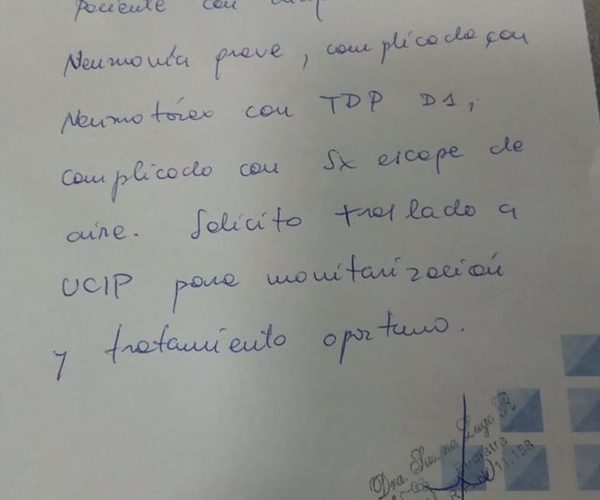 Paciente con
Neumonía grave, complicada con
Neumotórax con TDP D1,
complicado con Sx escape de
aire. Solicito traslado a
UCIP para monitorización
y tratamiento oportuno.
Dra. Lugo R
11.158